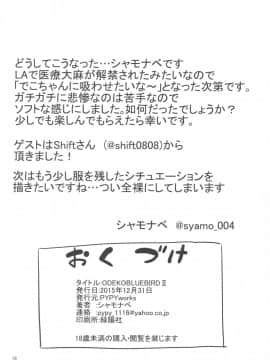 どうしてこうなった…シャモナベです
LAで医療大麻が解禁されたみたいなので
「でこちゃんに吸わせたいな~」となった次第です。
ガチガチに悲惨なのは苦手なので
ソフトな感じにしました。如何だったでしょうか?
少しでも楽しんでもらえたら幸いです。
ゲストはShiftさん (@shift0808)から
頂きました!
次はもう少し服を残したシチュエーションを
描きたいですね…つい全裸にしてしまいます
シャモナベ @syamo_004
おくづけ
タイトル:ODEKOBLUEBIRDⅡ
発行日:2015年12月31日
発行元:PYPYworks
著者:シャモナベ
連絡:pypy_1118@yahoo.co.jp
印刷所:緑陽社
18歳未満の購入・閲覧を禁じます